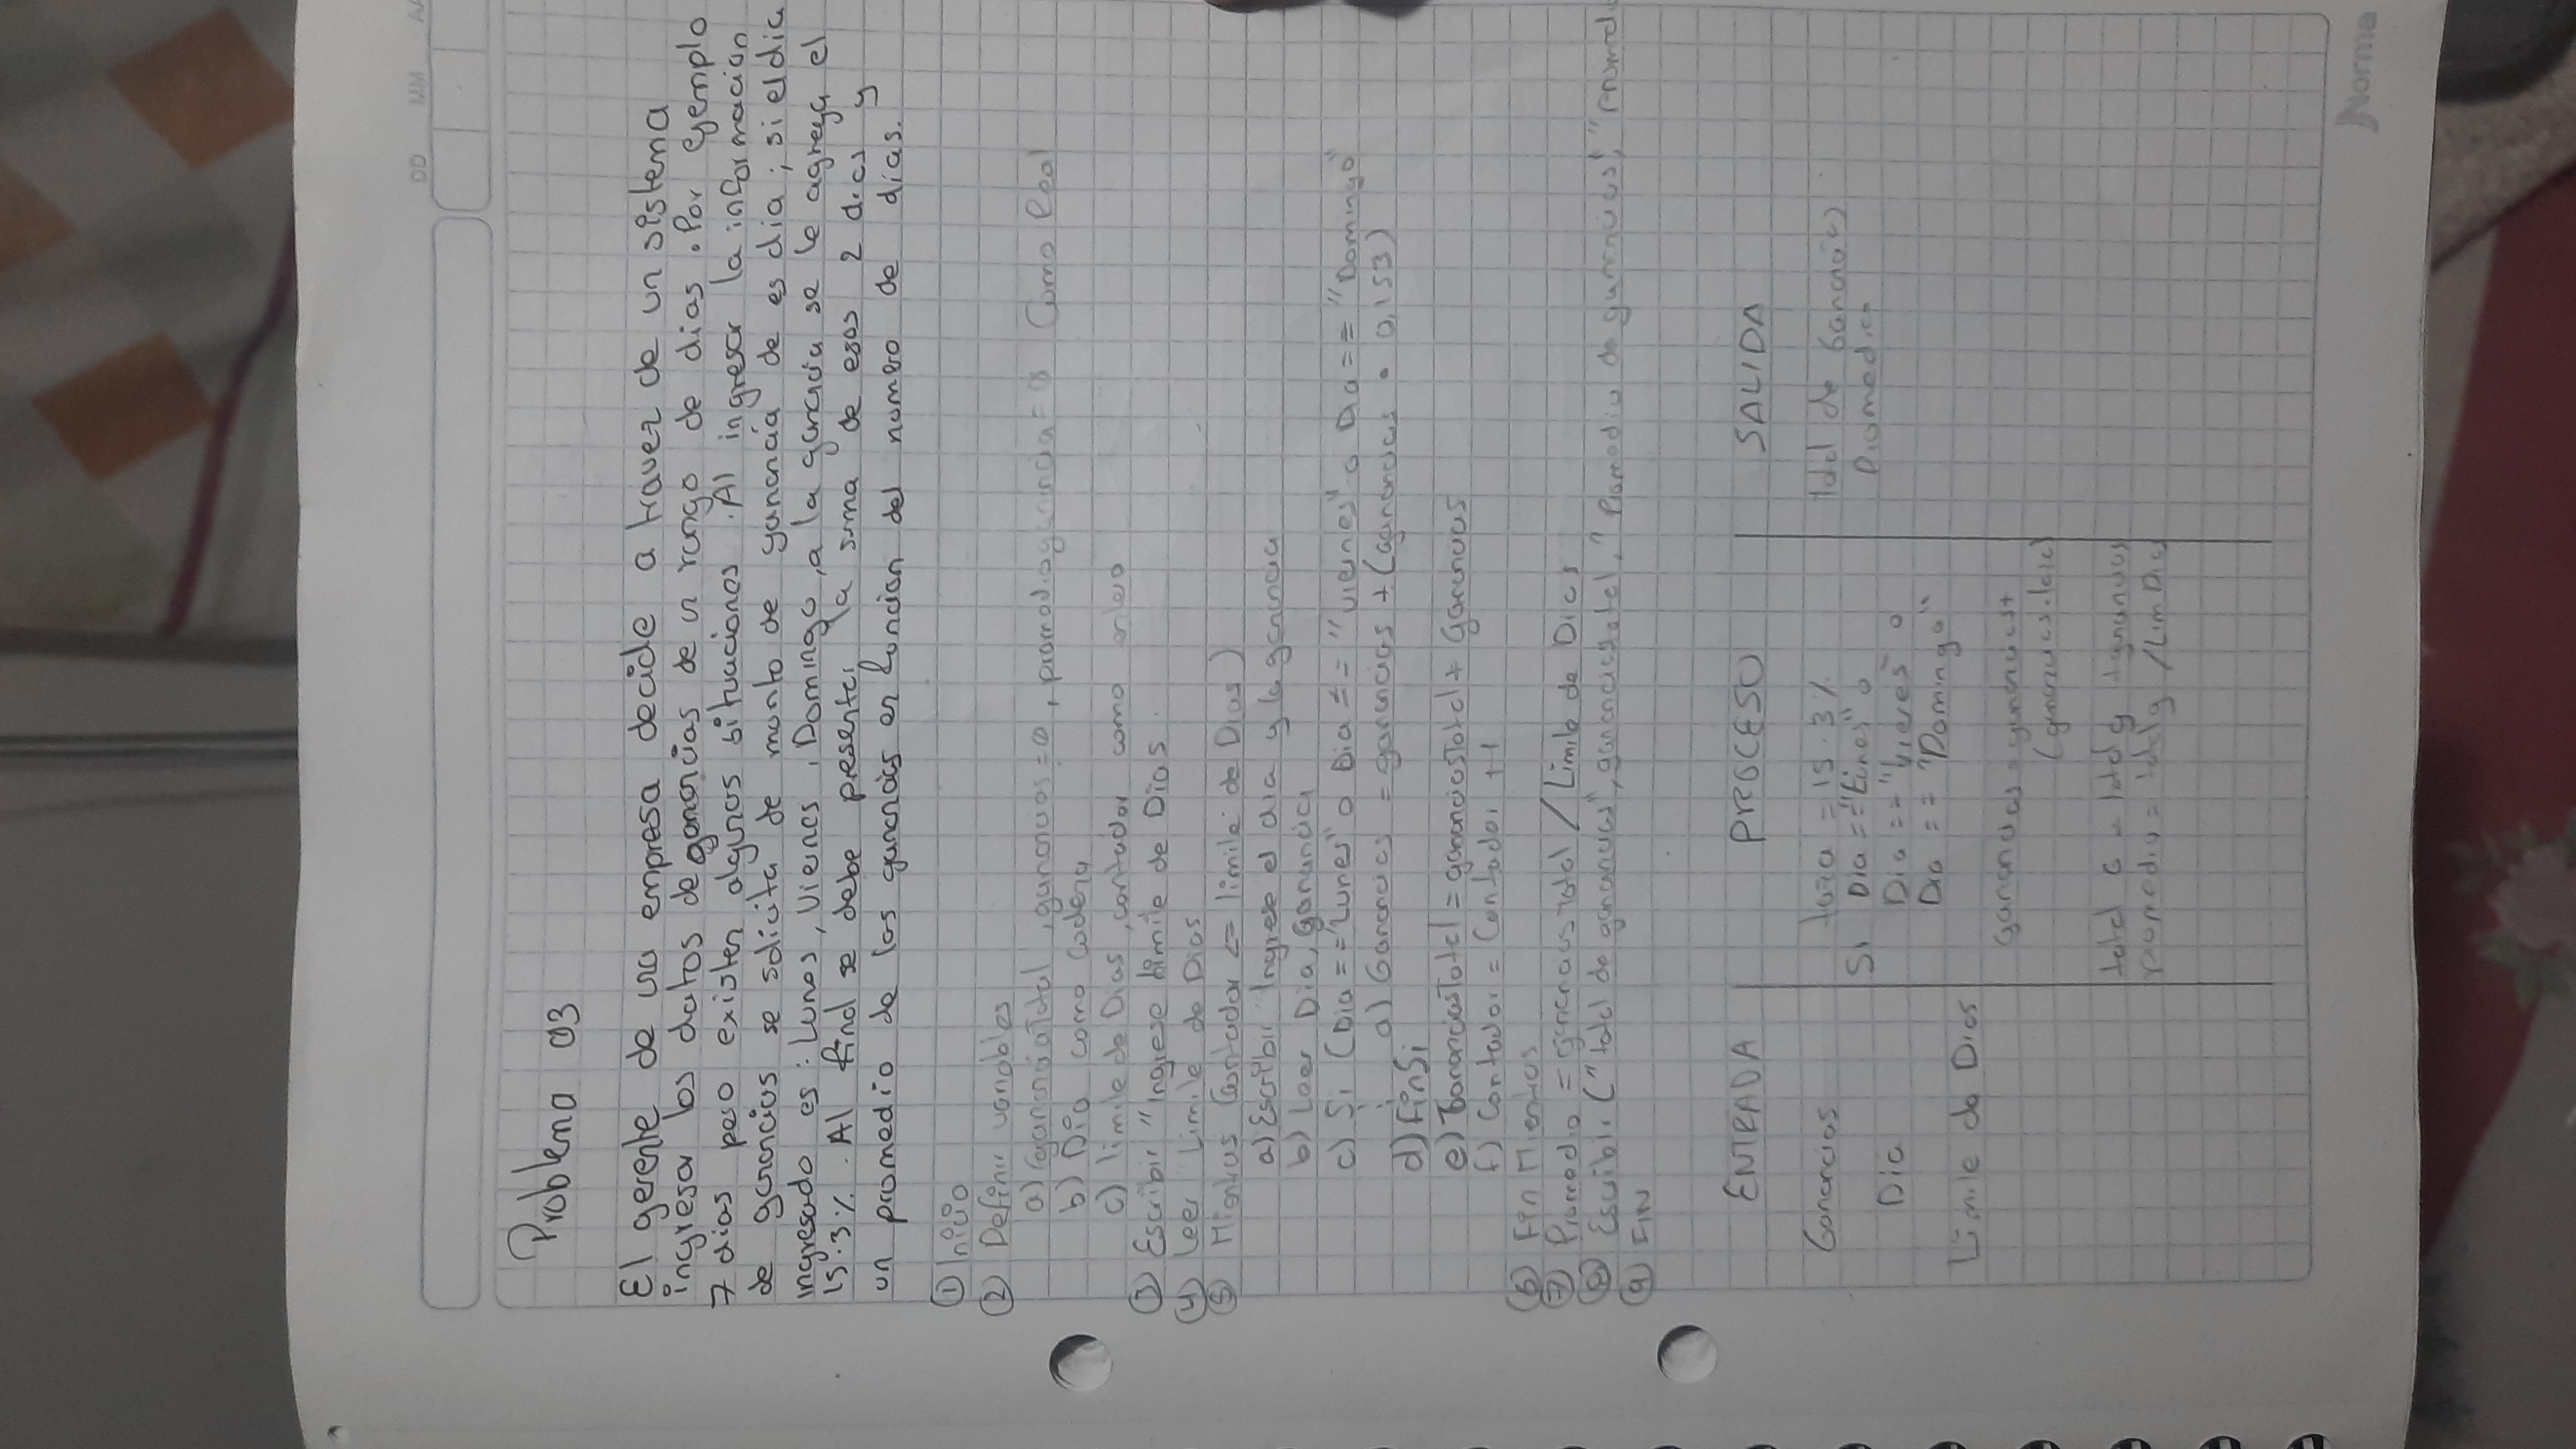 DD MM AA
Problema 03
El gerente de una empresa decide a travez de un sistema
ingresar los datos de ganancias de un rango de dias. Por ejemplo
7 dias peso existen algunas situaciones. Al ingresar la informacion
de ganancias se solicita de monto de ganancia de es dia; si el dia
ingresado es: Lunes, Viernes, Domingo, a la ganancia se le agrega el
15.3%. Al final se debe presentar la suma de esos 2 dias y
un promedio de las ganancias en funcion del numero de dias.
① Inicio
② Definir variables
a) gananciaTotal, ganancias = 0, promedioganancia = 0 Como Real
b) Dia como cadena
c) limite de Dias, contador como entero
③ Escribir "Ingrese limite de Dias
④ Leer Limite de Dias
⑤ Mientras (contador <= limite de Dias)
a) Escribir Ingrese el dia y la ganancia
b) Leer Dia, Ganancia
c) Si (Dia == "Lunes" o Dia == "Viernes" o Dia == "Domingo"
a) Ganancias = ganancias + (ganancias * 0,153)
d) FinSi
e) GananciasTotal = gananciasTotal + Ganancias
f) Contador = Contador ++1
⑥ Fin Mientras
⑦ Promedio = ganancias total / Limite de Dias
⑧ Escribir ("total de ganancias", gananciastotal, "Promedio de ganancias", "Promedi
⑨ FIN
ENTRADA PROCESO SALIDA
Ganancias taza = 15.3% total de Ganancias
Si Dia == "Lunes" o Promedio
Dia Dia == "Vieres" o
Dia == "Domingo"
Limite de Dias
ganancias = ganancias +
(ganancias.
total G = total g + ganancias
promedio = total g / Lim Dias
Norma